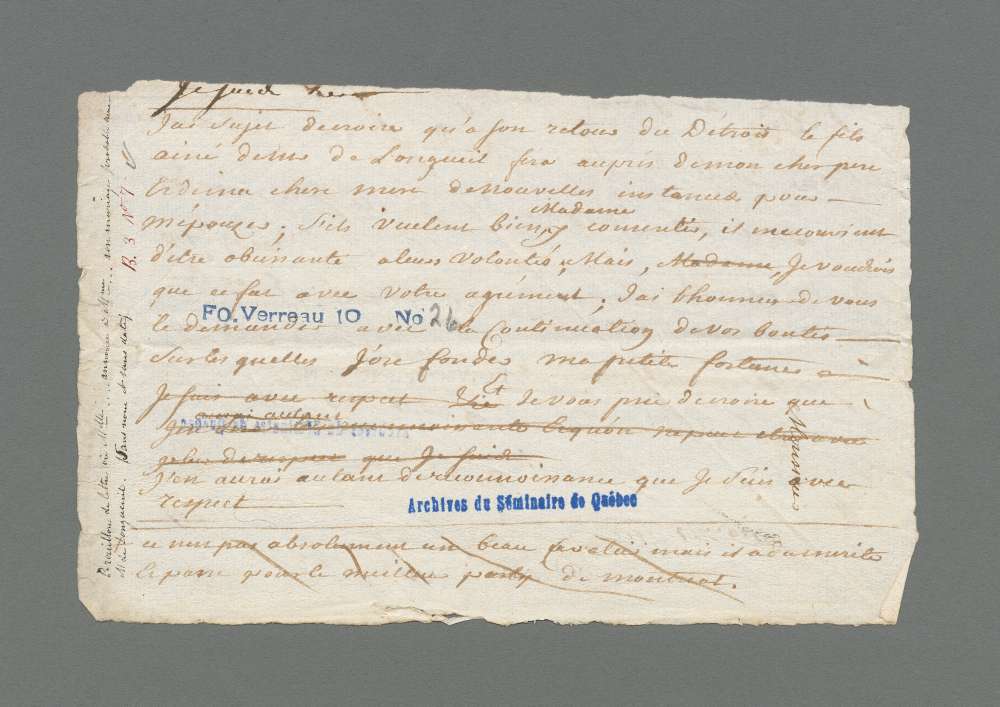 Je suis
J'ai Sujet de croire qu'a son retour du Détroit le fils
ainé de Mr de Longueil fera aupres de mon cher pere
Et de ma chere mere de nouvelles instances pour
Madame
m'épouzer, s'ils veulent bien y consentir, il me convient
d'être obeissante a leurs Volontés, Mais, Madame, Je voudrois
que ce fut avec Votre agrément, J'ai l'honneur de vous
le demander avec la Continuation de vos bontés
Sur les quelles J'ose fonder ma petite fortune
Je suis avec respect Et Je vous prie de croire que
aurai autant
reconnoissante
plus de respect que Je suis
J'en aurai autant de reconnoissance que Je Suis avec
respect
ce n'est pas absolument un beau Cavalier mais il a du merite
Et passe pour le meilleur party de montreal.
FO. Verreau 10 No 26
Archives du Séminaire de Québec
Brouillon de lettre où Melle annonce à Mme son mariage probable avec
M de Longueuil. Sans nom et sans date
B. 3 No 7